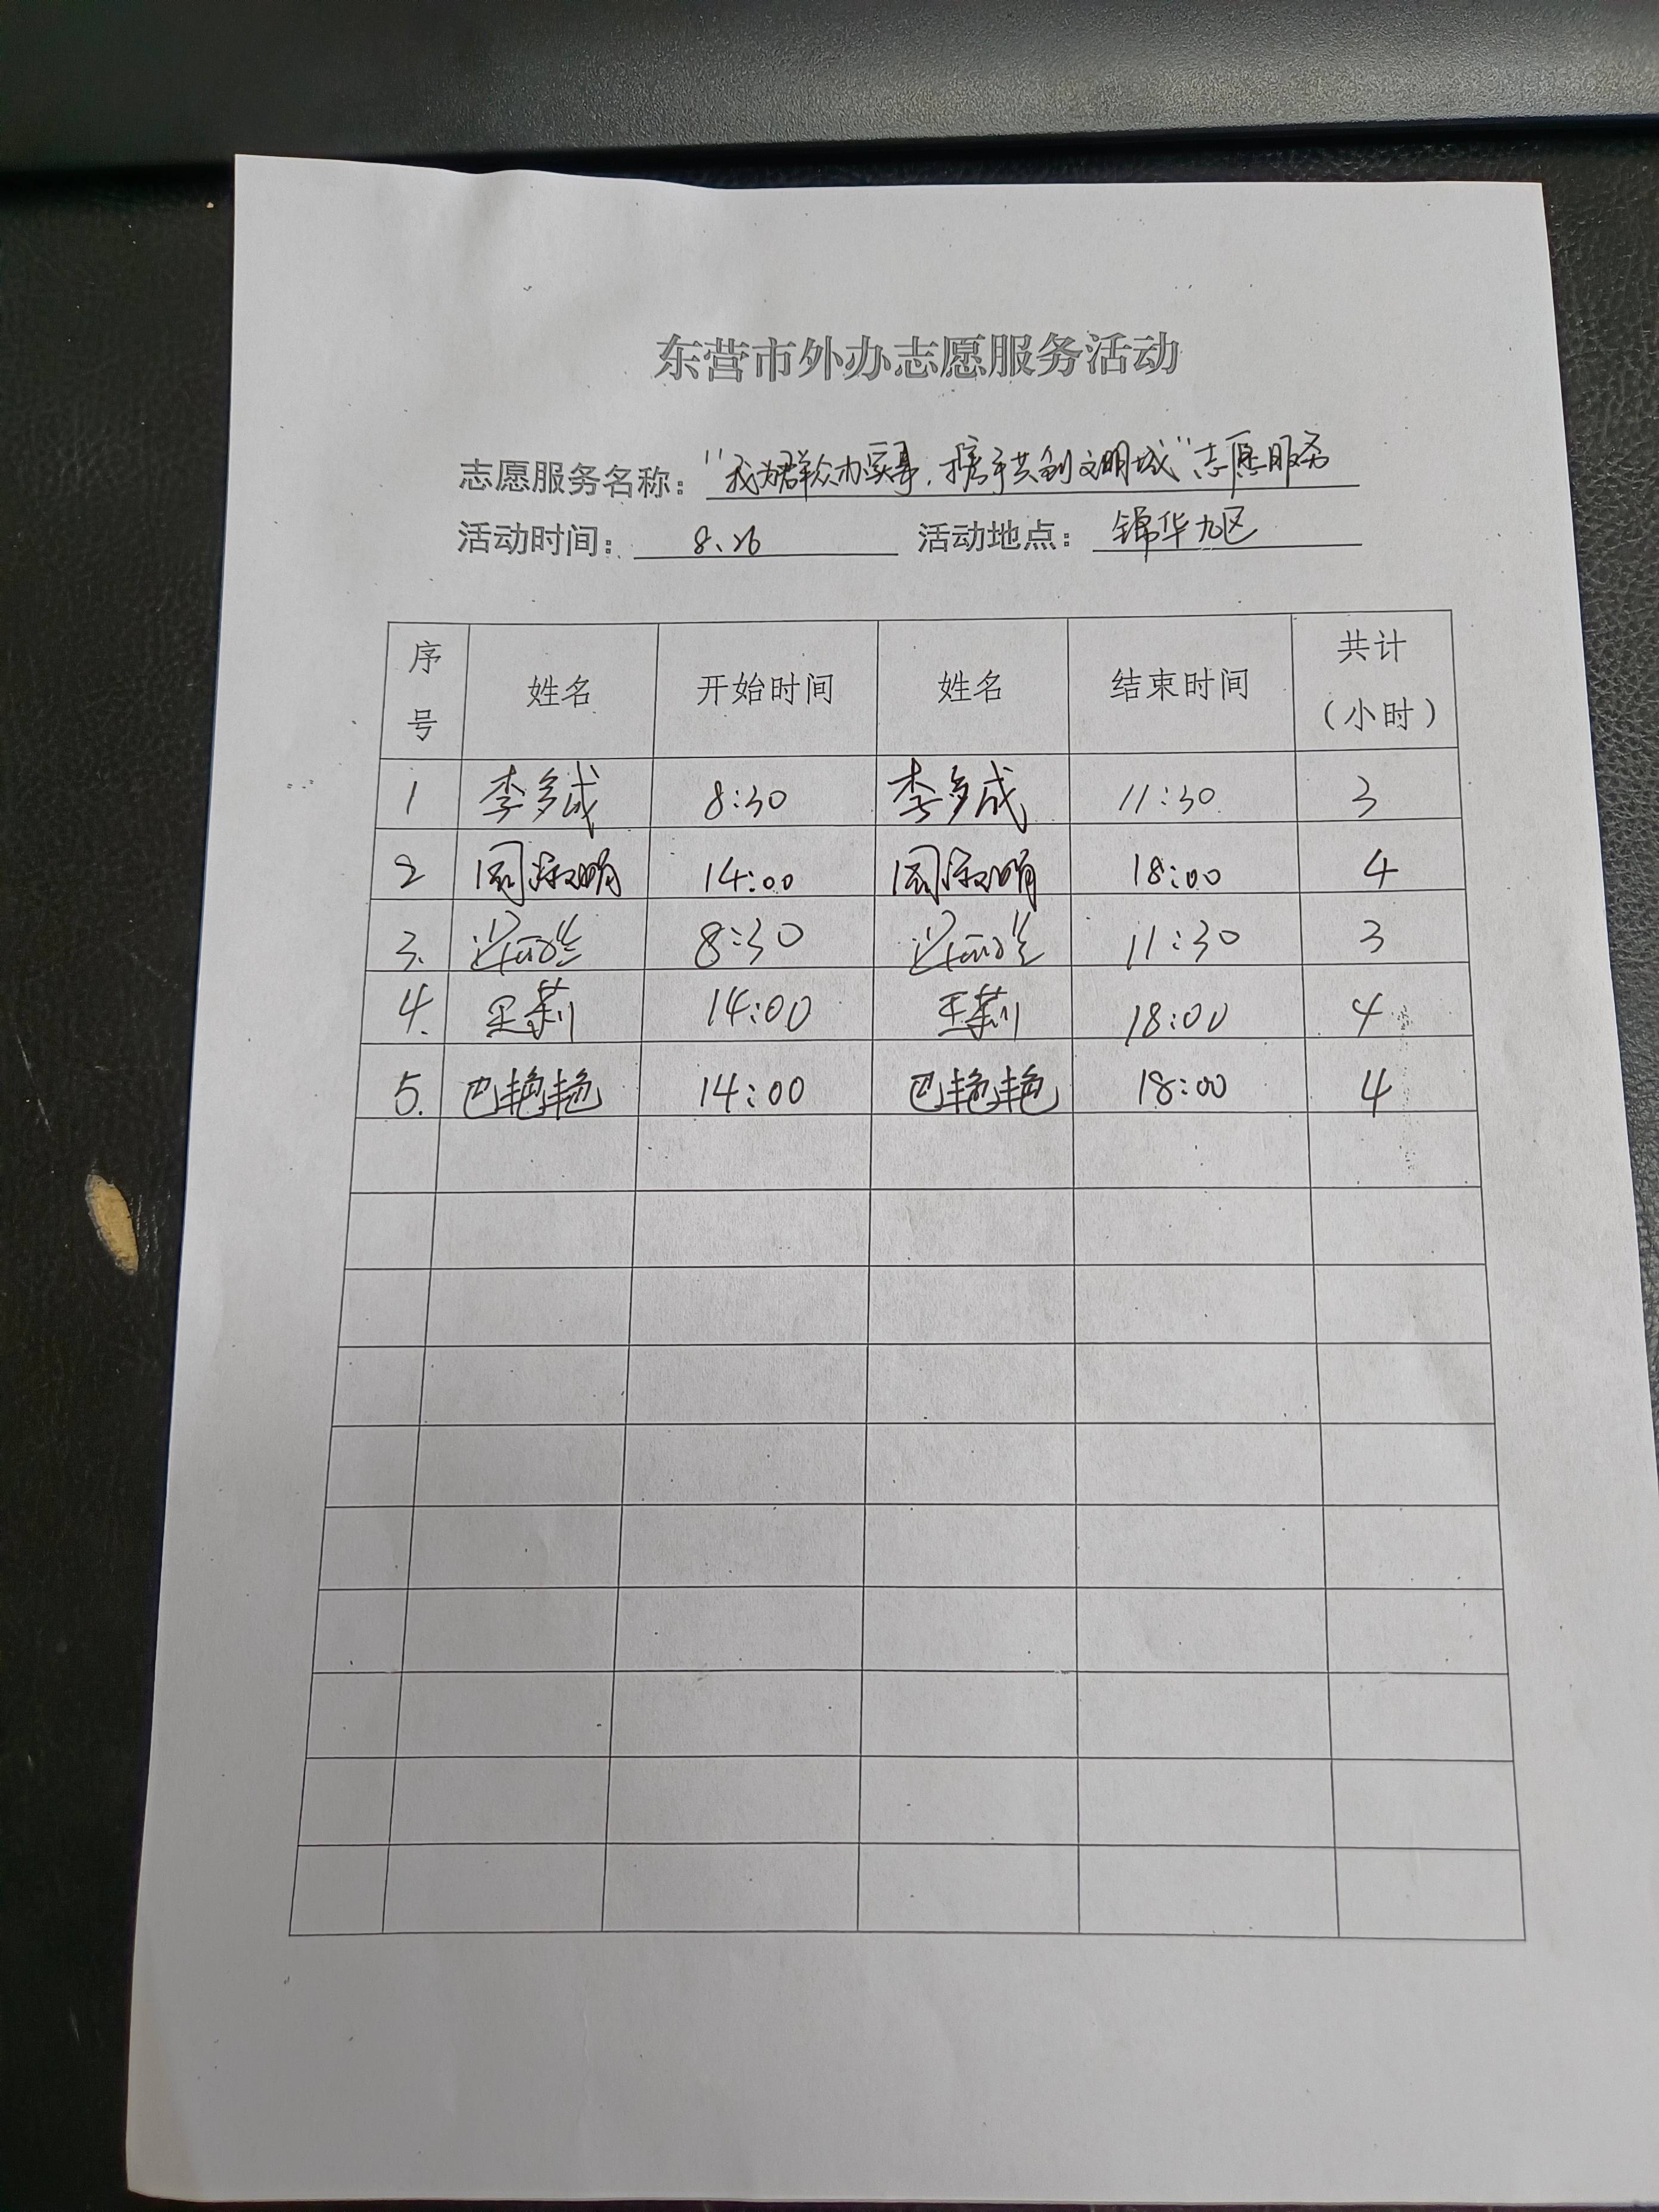 东营市外办志愿服务活动
志愿服务名称："我为群众办实事，携手共创文明城"志愿服务
活动时间：8.26 活动地点：锦华九区
序号 姓名 开始时间 姓名 结束时间 共计（小时）
1 李多成 8:30 李多成 11:30 3
2 14:00 18:00 4
3. 8:30 11:30 3
4. 王莉 14:00 王莉 18:00 4
5. 巴艳艳 14:00 巴艳艳 18:00 4